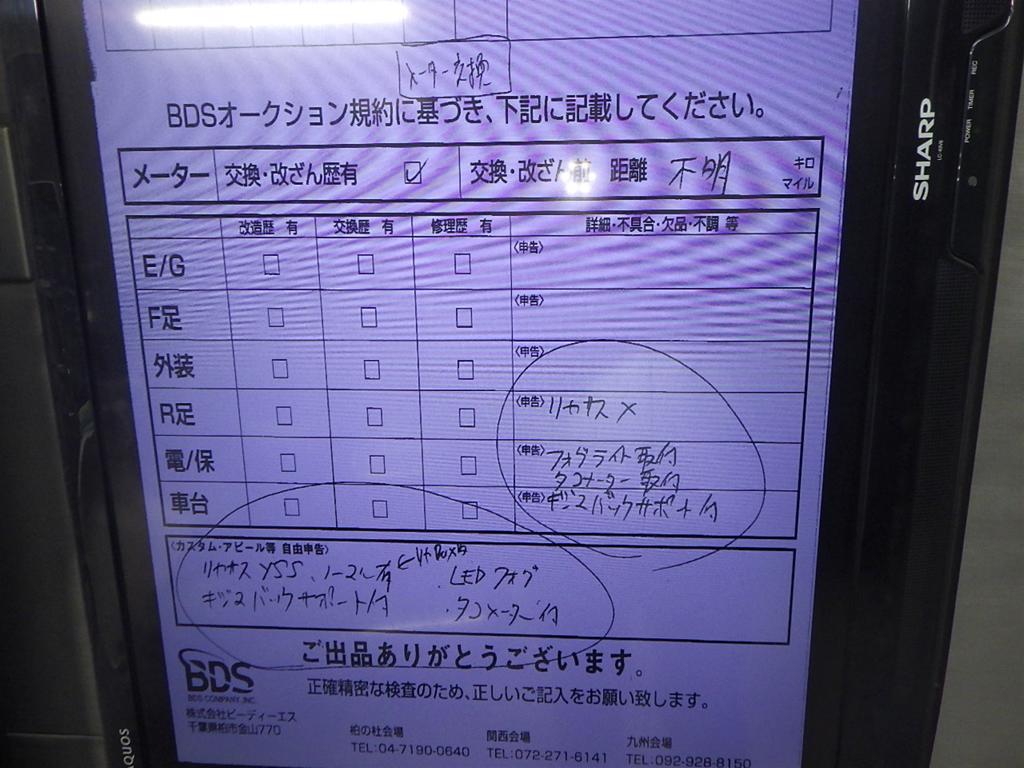 メーター交換
BDSオークション規約に基づき、下記に記載してください。
メーター 交換・改ざん歴有 ☑ 交換・改ざん前 距離 不明 キロ マイル
改造歴 有 交換歴 有 修理歴 有 詳細・不具合・欠品・不調 等
E/G □ □ □ 〈申告〉
F足 □ □ □ 〈申告〉
外装 □ □ □ 〈申告〉
R足 □ □ □ 〈申告〉リヤサス×
電/保 □ □ □ 〈申告〉フォグライト取付
タコメーター取付
車台 □ □ □ 〈申告〉バックサポート付
〈カスタム・アピール等 自由申告〉
リヤサスYSS、ノーマル有 ・LEDフォグ
バックサポート付 ・タコメーター付
ご出品ありがとうございます。
BDS 正確精密な検査のため、正しいご記入をお願い致します。
BDS COMPANY INC.
株式会社ビーディーエス
千葉県柏市金山770
柏の杜会場 関西会場 九州会場
TEL:04-7190-0640 TEL:072-271-6141 TEL:092-928-8150
SHARP
POWER TIMER REC
AQUOS